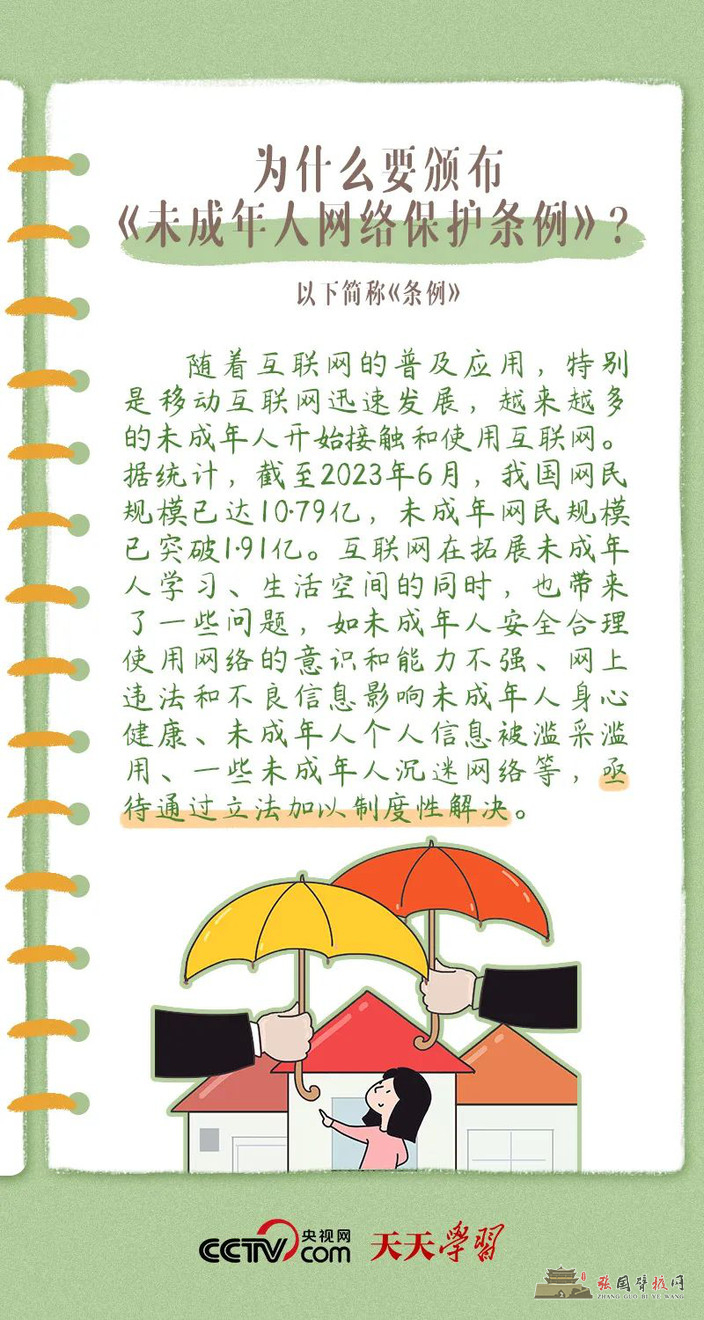 为什么要颁布
《未成年人网络保护条例》?
以下简称《条例》
随着互联网的普及应用，特别
是移动互联网迅速发展，越来越多
的未成年人开始接触和使用互联网。
据统计，截至2023年6月，我国网民
规模已达10·79亿，未成年网民规模
已突破1·91亿。互联网在拓展未成年
人学习、生活空间的同时，也带来
了一些问题，如未成年人安全合理
使用网络的意识和能力不强、网上
违法和不良信息影响未成年人身心
健康、未成年人个人信息被滥采滥
用、一些未成年人沉迷网络等，亟
待通过立法加以制度性解决。
CCTV 央视网 com 天天学習
张国臂掖网
ZHANG GUO BI YE WANG